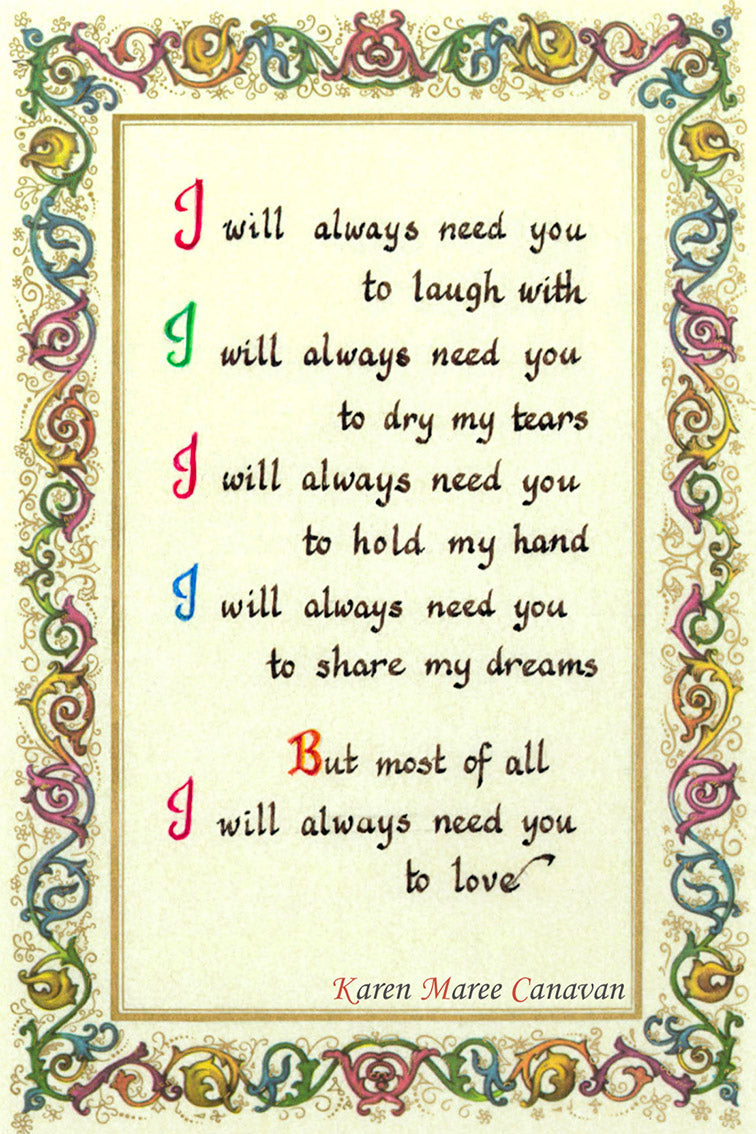 I will always need you
to laugh with
I will always need you
to dry my tears
I will always need you
to hold my hand
I will always need you
to share my dreams
But most of all
I will always need you
to love
Karen Maree Canavan